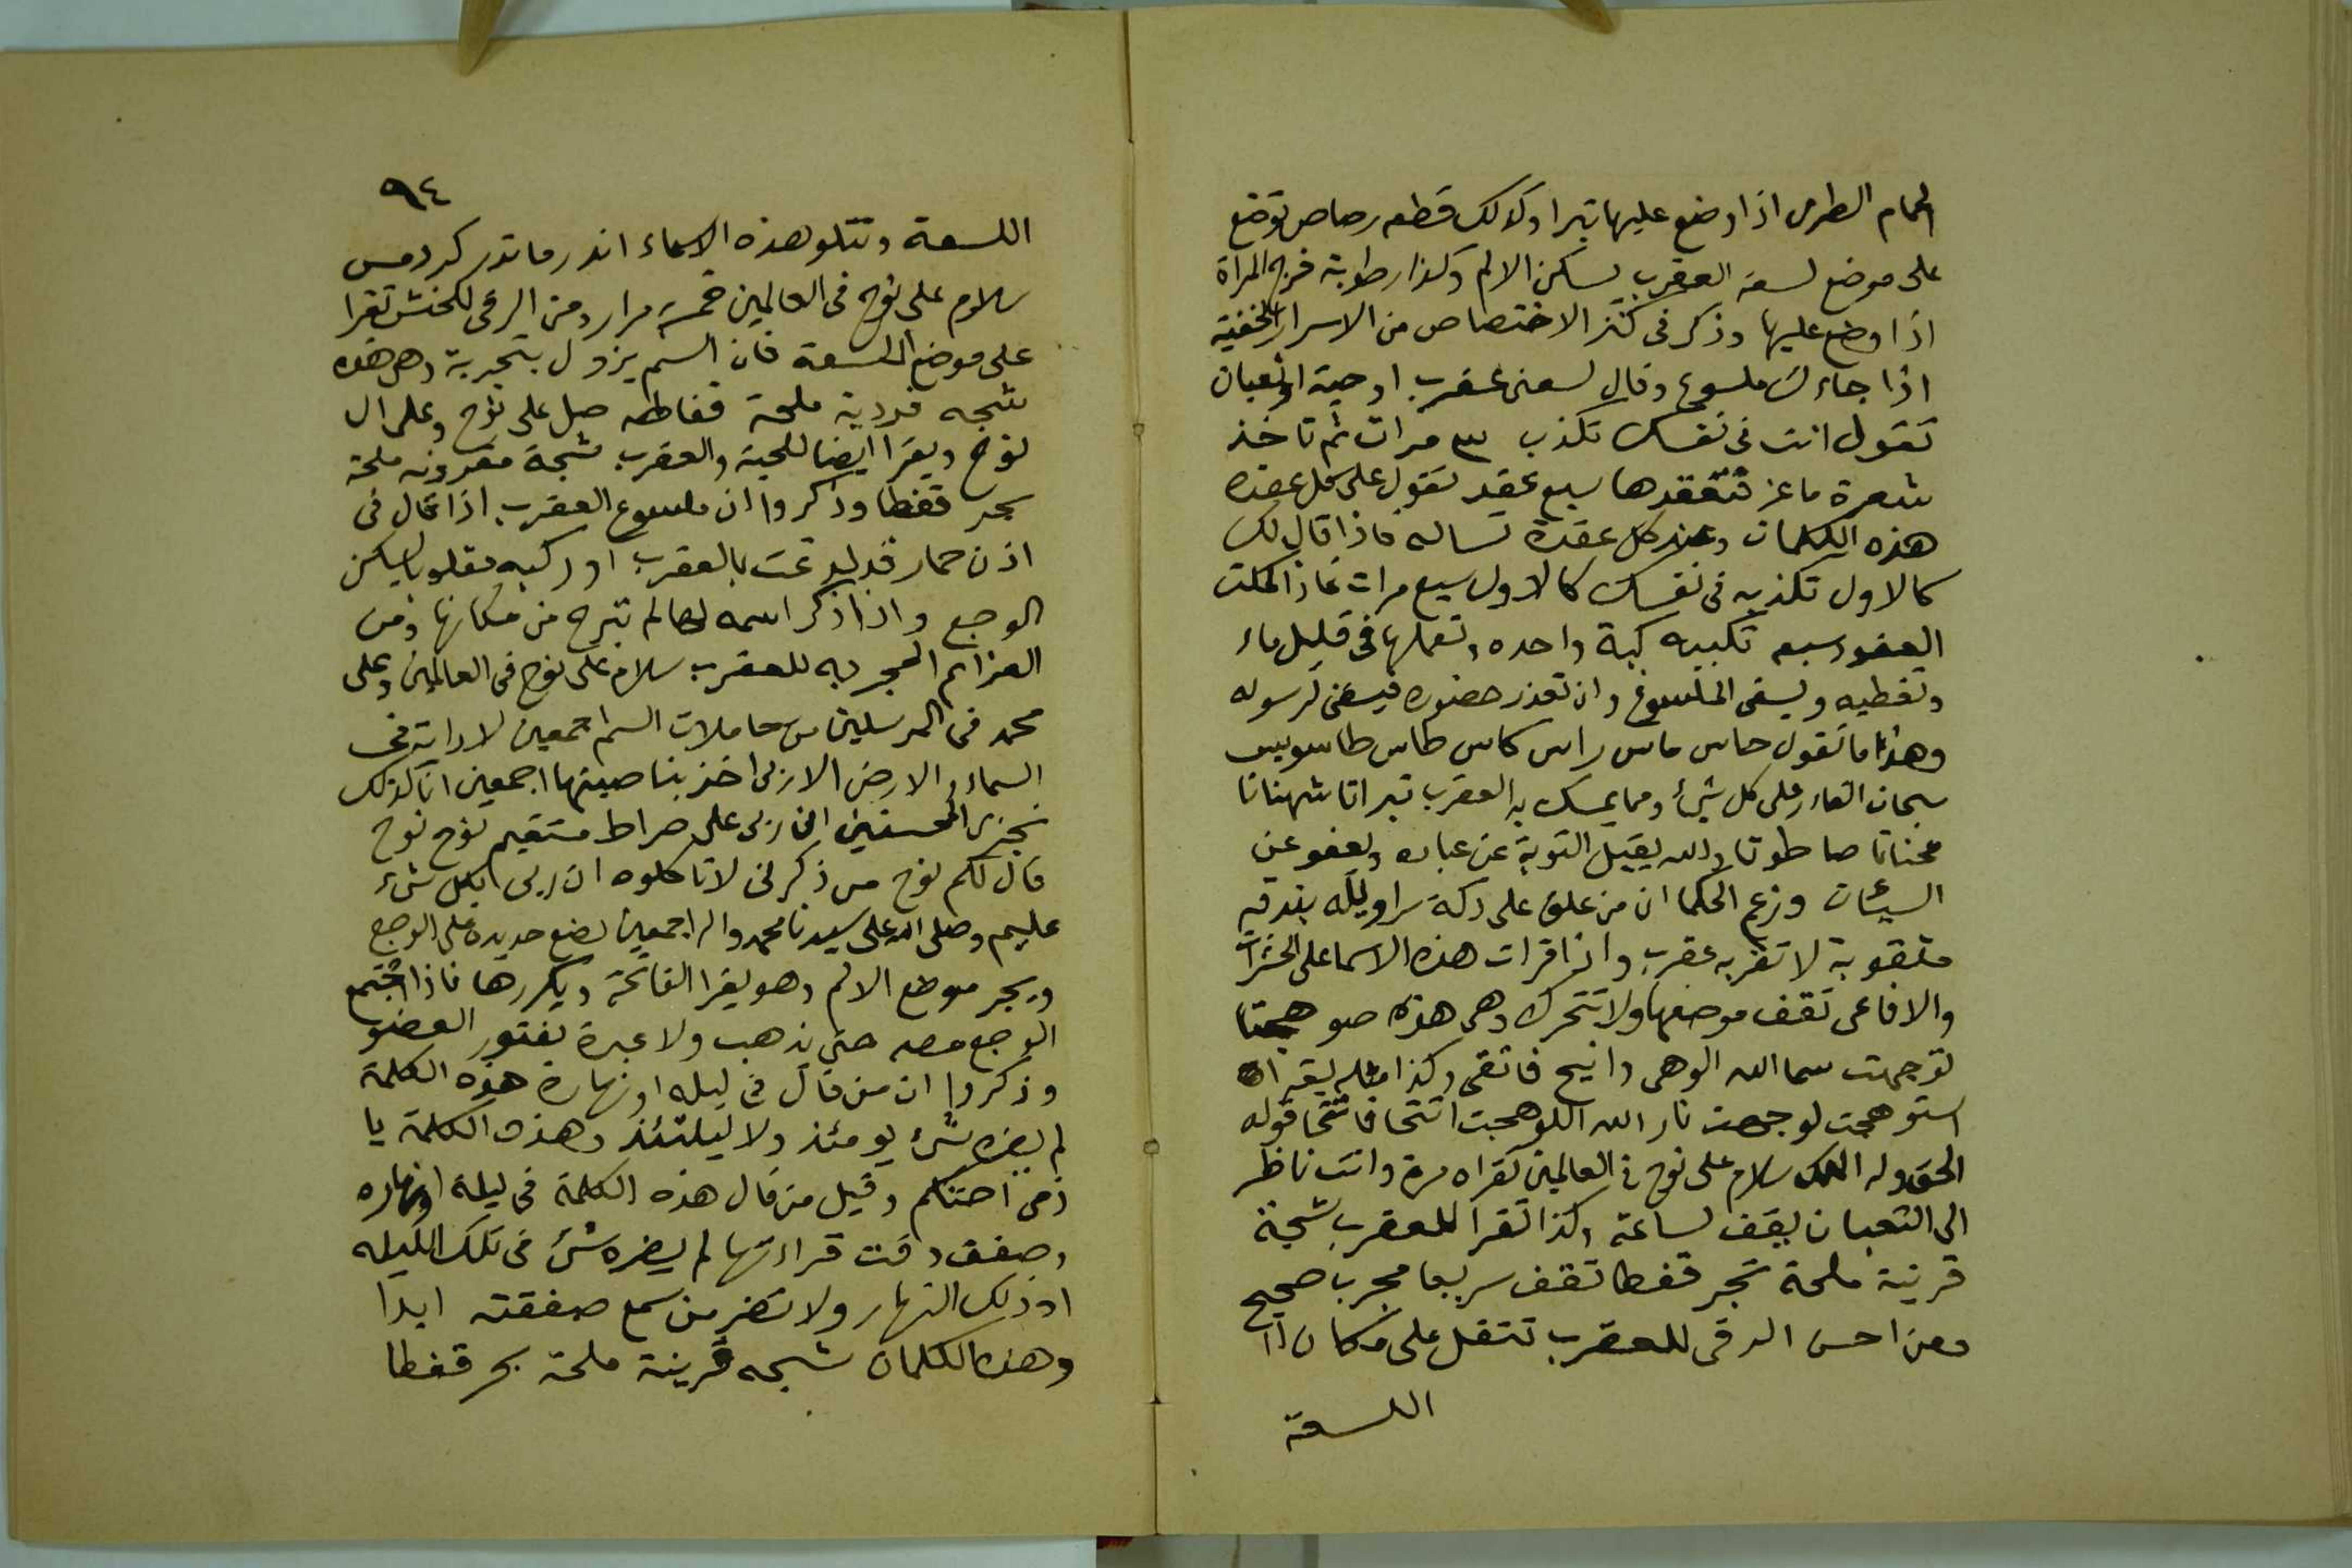 الحمام الطرى اذا وضع عليها تبرا وكذلك قطعه رصاص توضع
على موضع لسعة العقرب يسكن الالم وكذا رطوبة فرج المراة
اذا وضع عليها وذكر فى كنز الاختصاص من الاسرار الخفية
اذا جاءك ملسوع وقال لسعنى عقرب او حية او ثعبان
تقول انت فى نفسك تكذب ٣ مرات ثم تاخذ
شعرة ماعز تتعقدها سبع عقد تقول على كل عقده
هذه الكلمات وعند كل عقدة تساله فاذا قال لك
كالاول تكذبه فى نفسك كالاول سبع مرات فاذا كملت
العقود سبعه تكببه كبة واحده وتعملها فى قليل ماء
وتغطيه ويسقى الملسوع وان تعذر حضوره فيسقى لرسوله
وهذا ما تقول حاس ماس راس كاس طاس طاسويس
سبحان القادر على كل شئ ومما يمسك به العقرب تبراتا شهناتا
محناتا صاطوتا والله يقبل التوبة عن عباده ويعفو عن
السيئات وزعم الحكما ان من علق على دكة سراويله بندقه
مثقوبة لا تقربه عقرب واذا قرات هذه الاسما على الحشرات
والافاعى تقف موضعها ولا تتحرك وهى هذه صو هجتا
توجهت سما الله الوهى وانيح فاتقى وكذا مثله يقرا
استوهجت لوجهت نار الله اللوهجت انتحا فانتحا قوله
الحق وله الملك سلام على نوح فى العالمين تقراه مرة وانت ناظر
الى الثعبان يقف لساعته وكذا تقرا للعقرب شجة
قرنية ملحة بحر قفطا تقف سريعا مجرب صحيح
ومن احسن الرقى للعقرب تتفل على مكان
اللسعة
٩٤
اللسعة وتتلو هذه الاسماء اندر ماندر كردمس
سلام على نوح فى العالمين خمسة مرار ومن الرقى لكحنش تقرا
على موضع اللسعة فان السم يزول بتجربة وهى هذه
شجه قردية ملحة قفاطه صل على نوح وعلى ال
نوح ويقرا ايضا للحية والعقرب شجة مقرونه ملحة
بحر قفطا وذكروا ان ملسوع العقرب اذا قال فى
اذن حمار قد لدغت بالعقرب او ركبه مقلوبا يسكن
الوجع واذا ذكر اسمه لها لم تبرح من مكانها ومن
العزائم المجربه للعقرب سلام على نوح فى العالمين وعلى
محمد فى المرسلين من حاملات السم اجمعين لا دابة فى
السماء والارض الا ربى اخذ بناصيتها اجمعين انا كذلك
نجزى المحسنين ان ربى على صراط مستقيم نوح نوح
قال لكم نوح من ذكرنى لا تاكلوه ان ربى بكل شئ
عليم وصلى الله على سيدنا محمد واله اجمعين يضع حديده على الوجع
ويجر موضع الالم وهو يقرا الفاتحة ويكررها فاذا اجتمع
الوجع مصه حتى يذهب ولا عبرة بفتور العضو
وذكروا ان من قال فى ليله او نهارة هذه الكلمة
لم يضره شئ يومئذ ولا ليلتئذ وهذه الكلمة يا
ذمى احتنكم وقيل من قال هذه الكلمة فى ليلة او نهاره
وصفق وقت قراءتها لم يضره شئ فى تلك الليله
او ذلك النهار ولا تضر من سمع صفقته ابدا
وهذه الكلمات شجه قرينة ملحة بحر قفطا